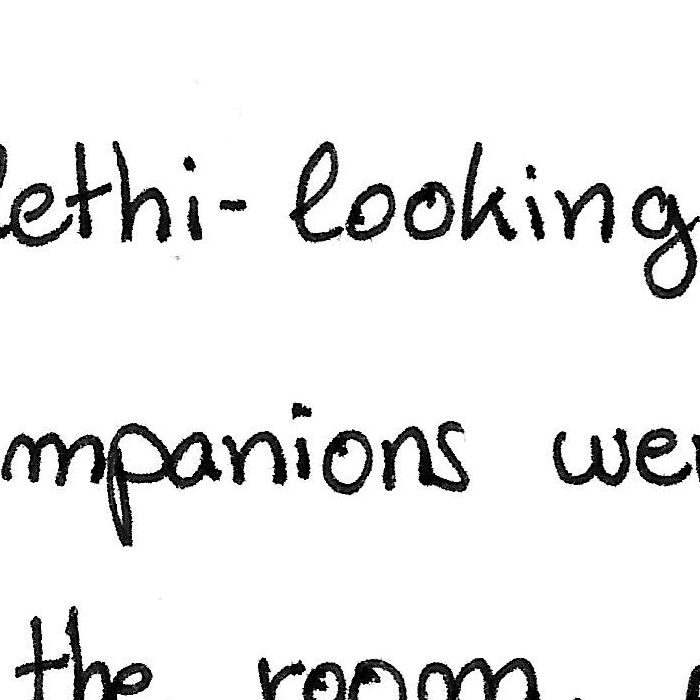 lethi-looking
mpanions wer
the room,